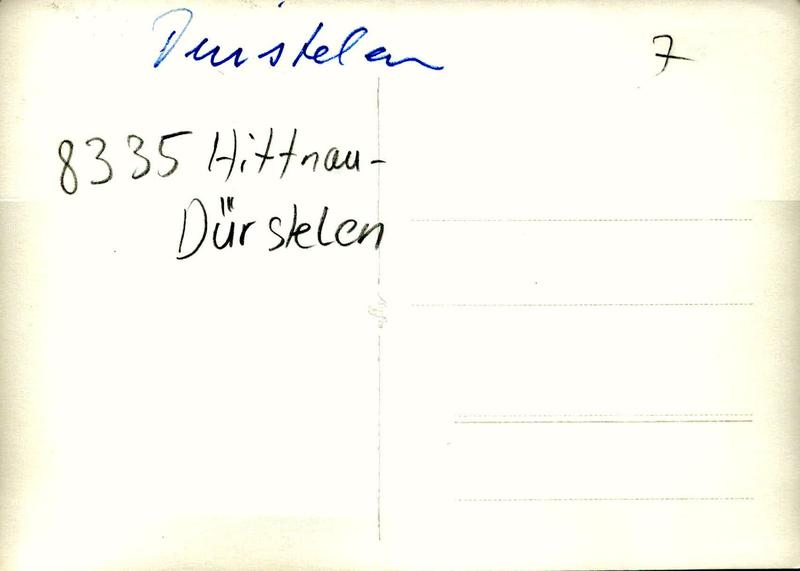 Dürstelen
7
8335 Hittnau-
Dürstelen